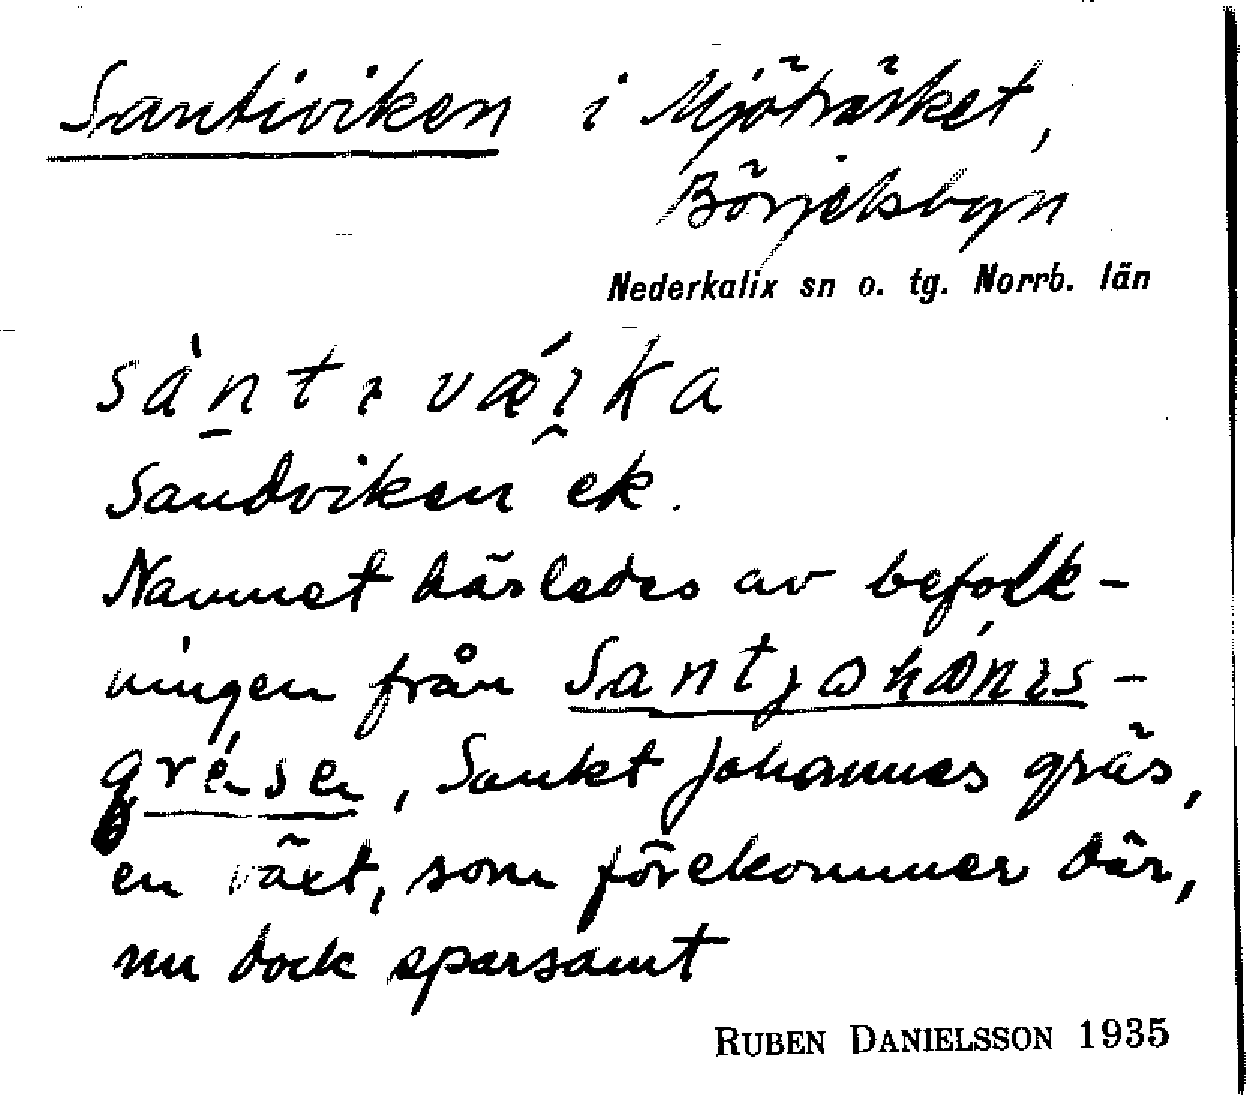 Santiviken i Mjöträsket,
Börjelsbyn
Nederkalix sn o. tg. Norrb. län
Sandviken ek.
Namnet härledes av befolk-
ningen från Santjohanɪs-
grese, Sankt Johannes gräs,
en växt, som förekommer där,
nu dock sparsamt
RUBEN DANIELSSON 1935